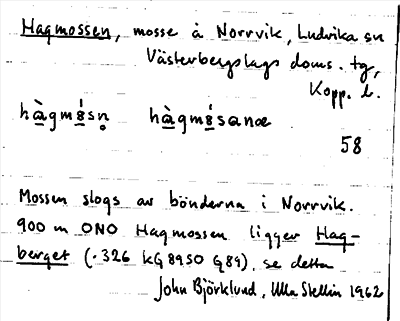 Hagmossen, mosse å Norrvik, Ludvika sn
Västerbergslags doms. tg,
Kopp. l.
hàgmósn̥ hàgmósanœ
58
Mossen slogs av bönderna i Norrvik.
900 m ONO Hagmossen ligger Hag-
berget (.326 kG 8950 G89), se detta
John Björklund, Ulla Stellin 1962